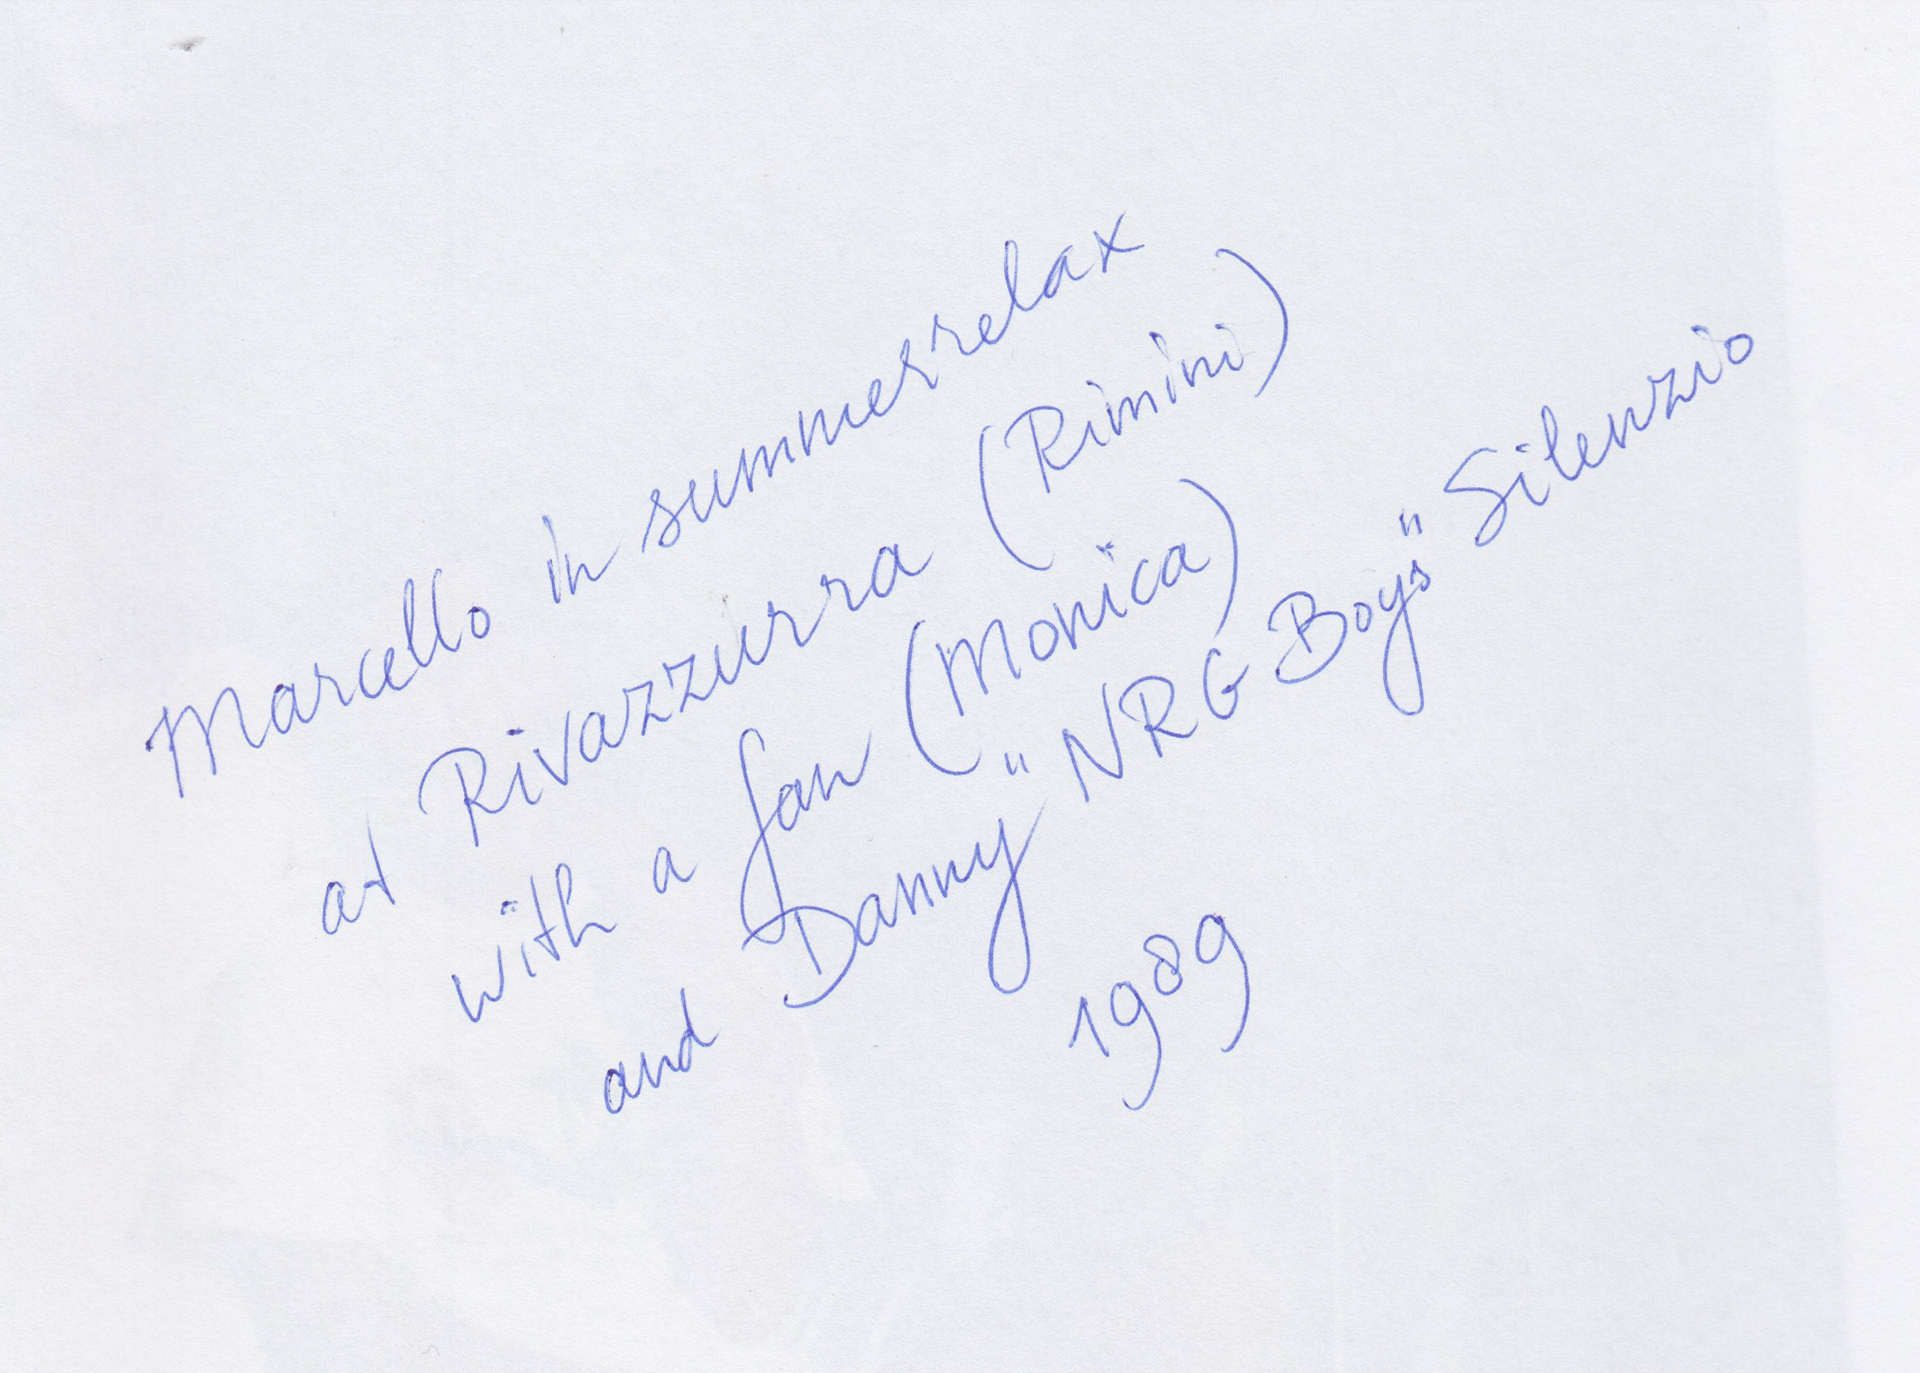 Marcello in summerrelax
at Rivazzurra (Rimini)
with a fan (Monica)
and Danny "NRG Boys" Silenzio
1989